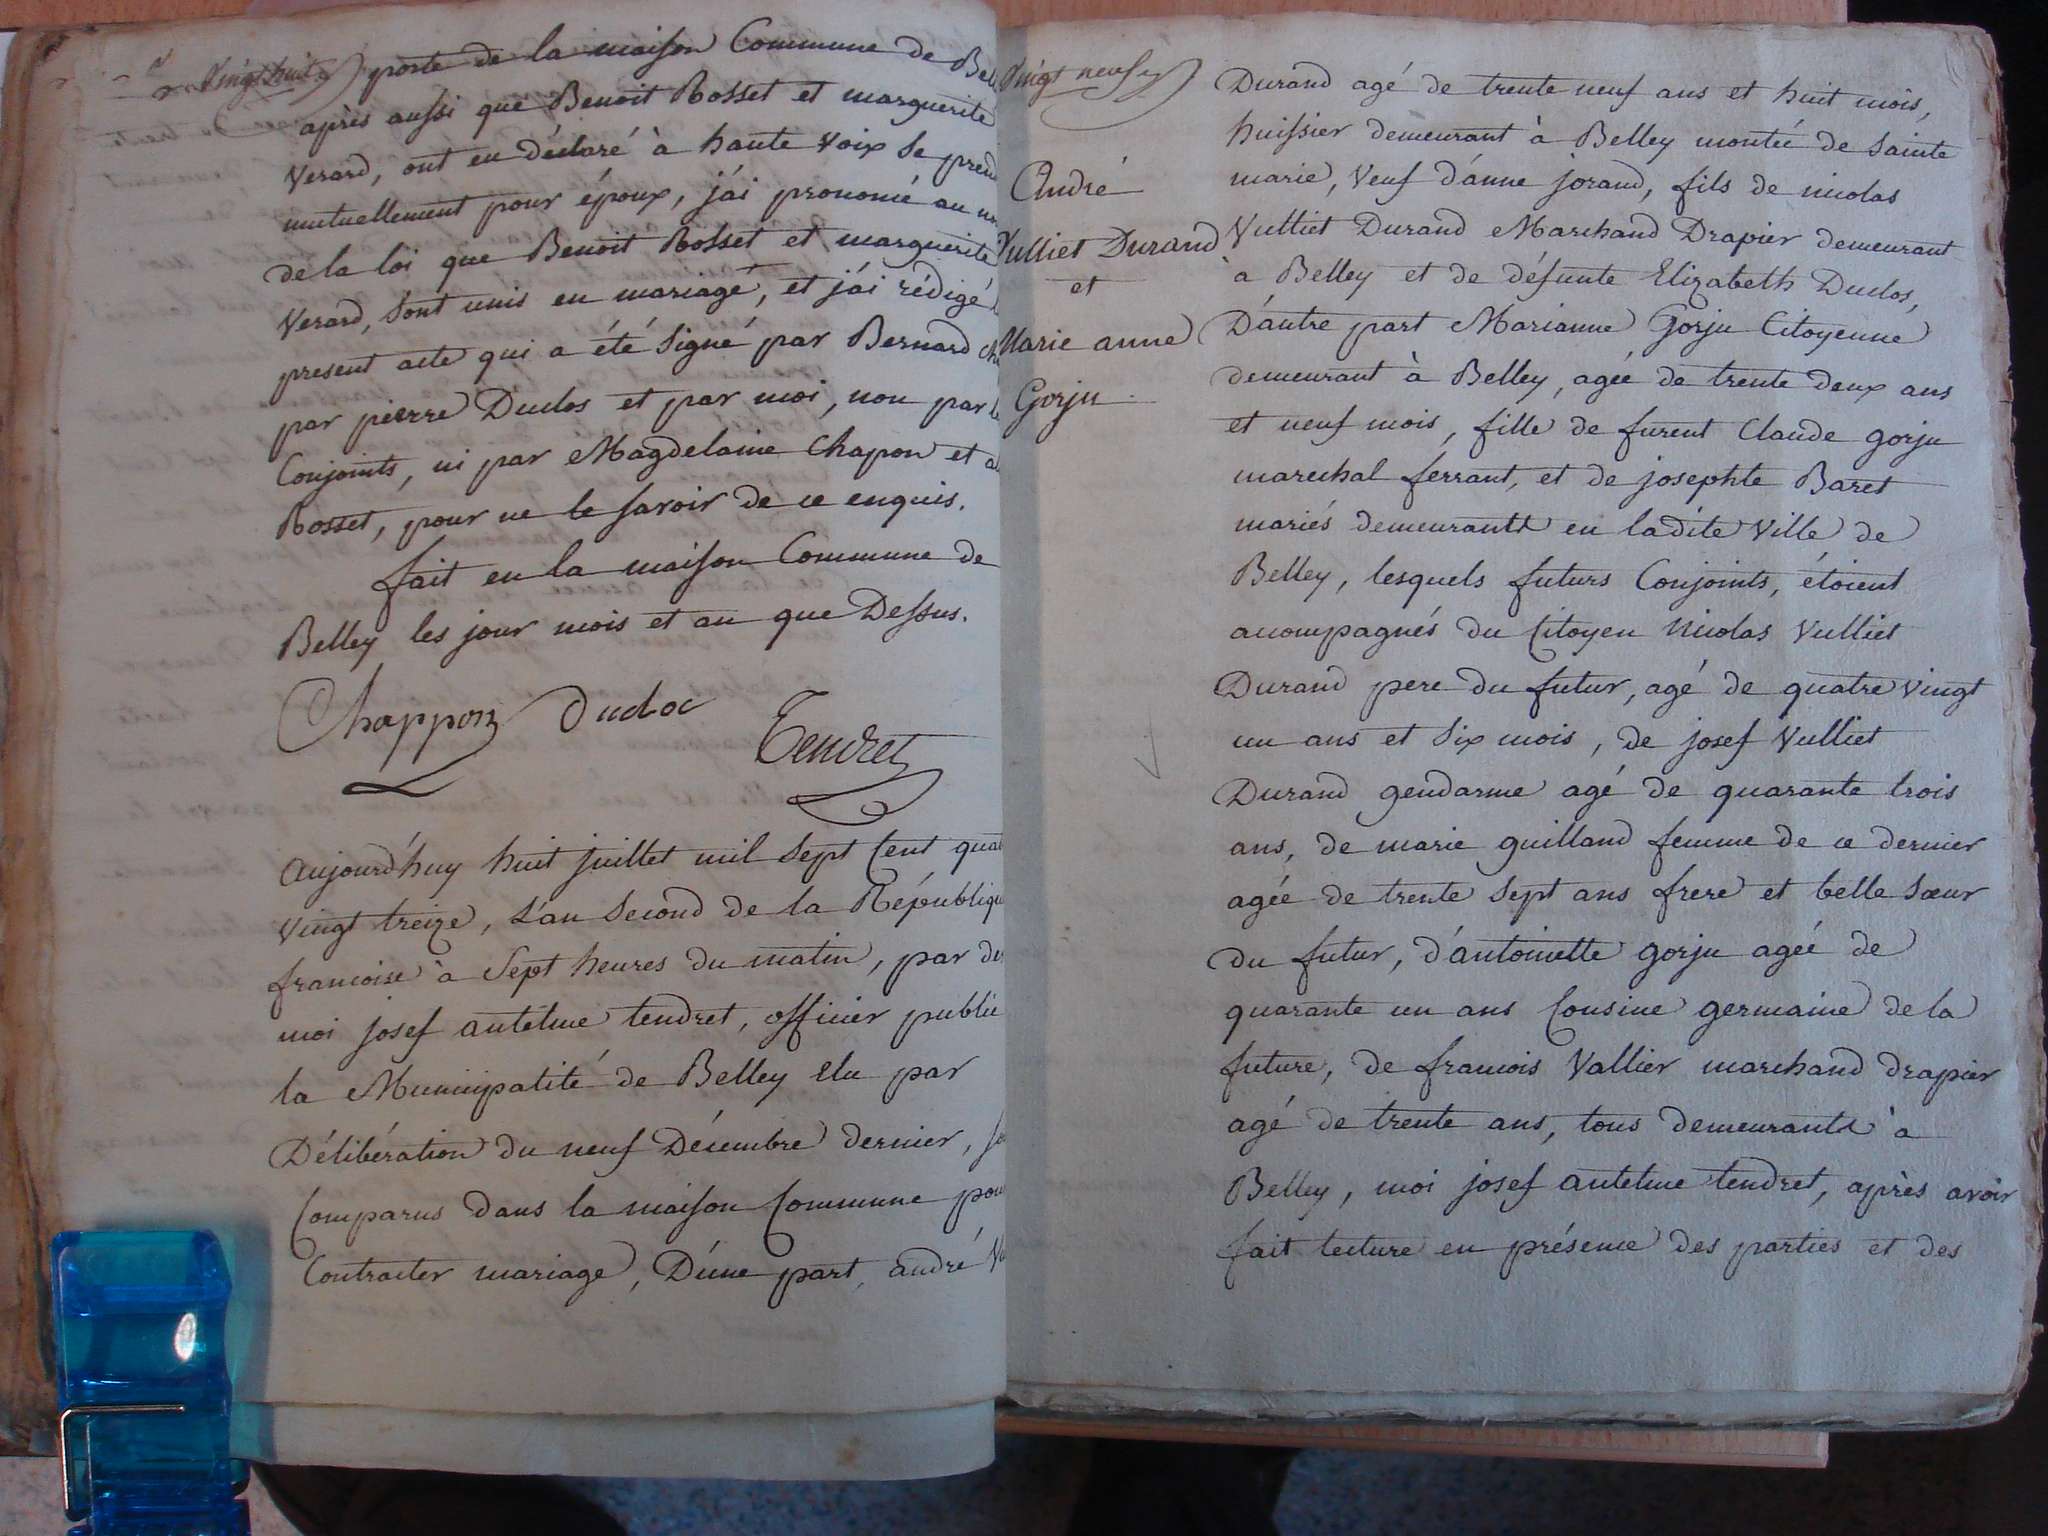 Vingt huit porte de la maison Commune de
après aussi que Benoit Rosset et marguerite
Verard, ont eu déclaré à haute voix se
mutuellement pour époux, j'ai prononcé au
de la loi que Benoit Rosset et marguerite
Verard, sont unis en mariagé, et j'ai rédigé
present acte qui a été signé par Bernard
par pierre Duclos et par moi, non par
Conjoints, ni par Magdelaine Chapon et
Rosset, pour ne le savoir de ce enquis.
fait en la maison Commune de
Belley les jour mois et an que Dessus.
Chappon Dudoc
Tendret
Aujourd'huy huit juillet mil sept Cent
Vingt treize, L'an second de la République
francoise à sept heures du matin, par
moi josef antelme tendret, officier public
la Municipalité de Belley Elu par
Délibération du neuf Décembre dernier,
Comparus dans la maison Commune
Contracter mariage, D'une part, andré
Vingt neuf
André
Vulliet Durand
et
Marie anne
Gorju
Durand agé de trente neuf ans et huit mois,
huissier demeurant à Belley montée de sainte
marie, Veuf d'anne jorand, fils de nicolas
Vulliet Durand Marchand Drapier demeurant
à Belley et de défunte Elizabeth Duclos,
D'autre part Marianne Gorju Citoyenne
demeurant à Belley, agée de trente deux ans
et neuf mois, fille de furent Claude gorju
marechal ferrant, et de josephte Baret
mariés demeurantt en ladite Ville de
Belley, lesquels futurs Conjoints, étoient
acompagnés du Citoyen Nicolas Vulliet
Durand pere du futur, agé de quatre vingt
un ans et six mois, de josef Vulliet
Durand gendarme agé de quarante trois
ans, de marie guilland femme de ce dernier
agée de trente sept ans frere et belle sœur
du futur, d'antoinette gorju agée de
quarante un ans Cousine germaine de la
future, de francois Vallier marchand drapier
agé de trente ans, tous demeurantt à
Belley, moi josef antelme tendret, après avoir
fait lecture en présence des parties et des